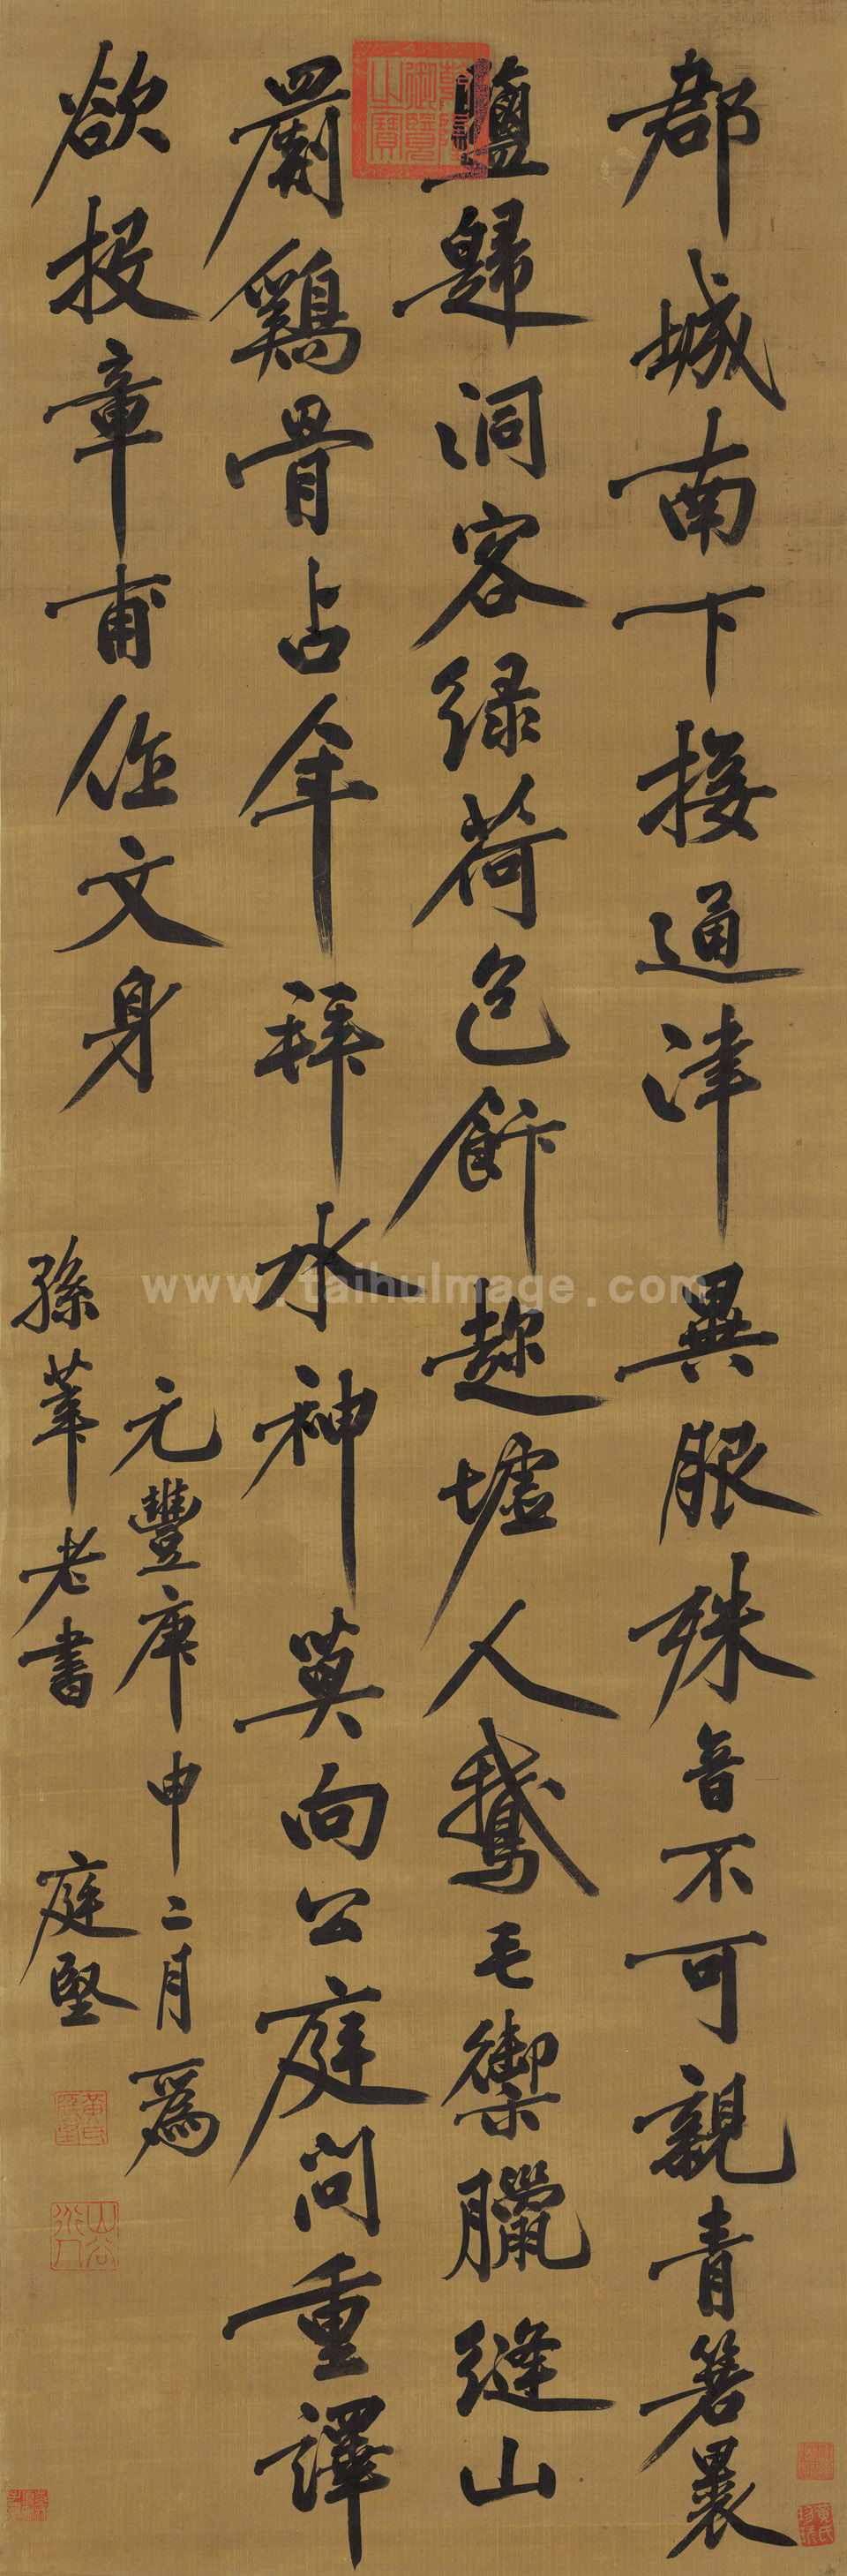 郡城南下接通津異服殊音不可親青箬裹
鹽歸洞客綠荷包飰趂墟人鵝毛禦臘縫山
罽鷄骨占年拜水神莫向公庭問重譯
欲投章甫作文身
元豐庚申二月爲
孫莘老書
庭堅
www.taihuImage.com